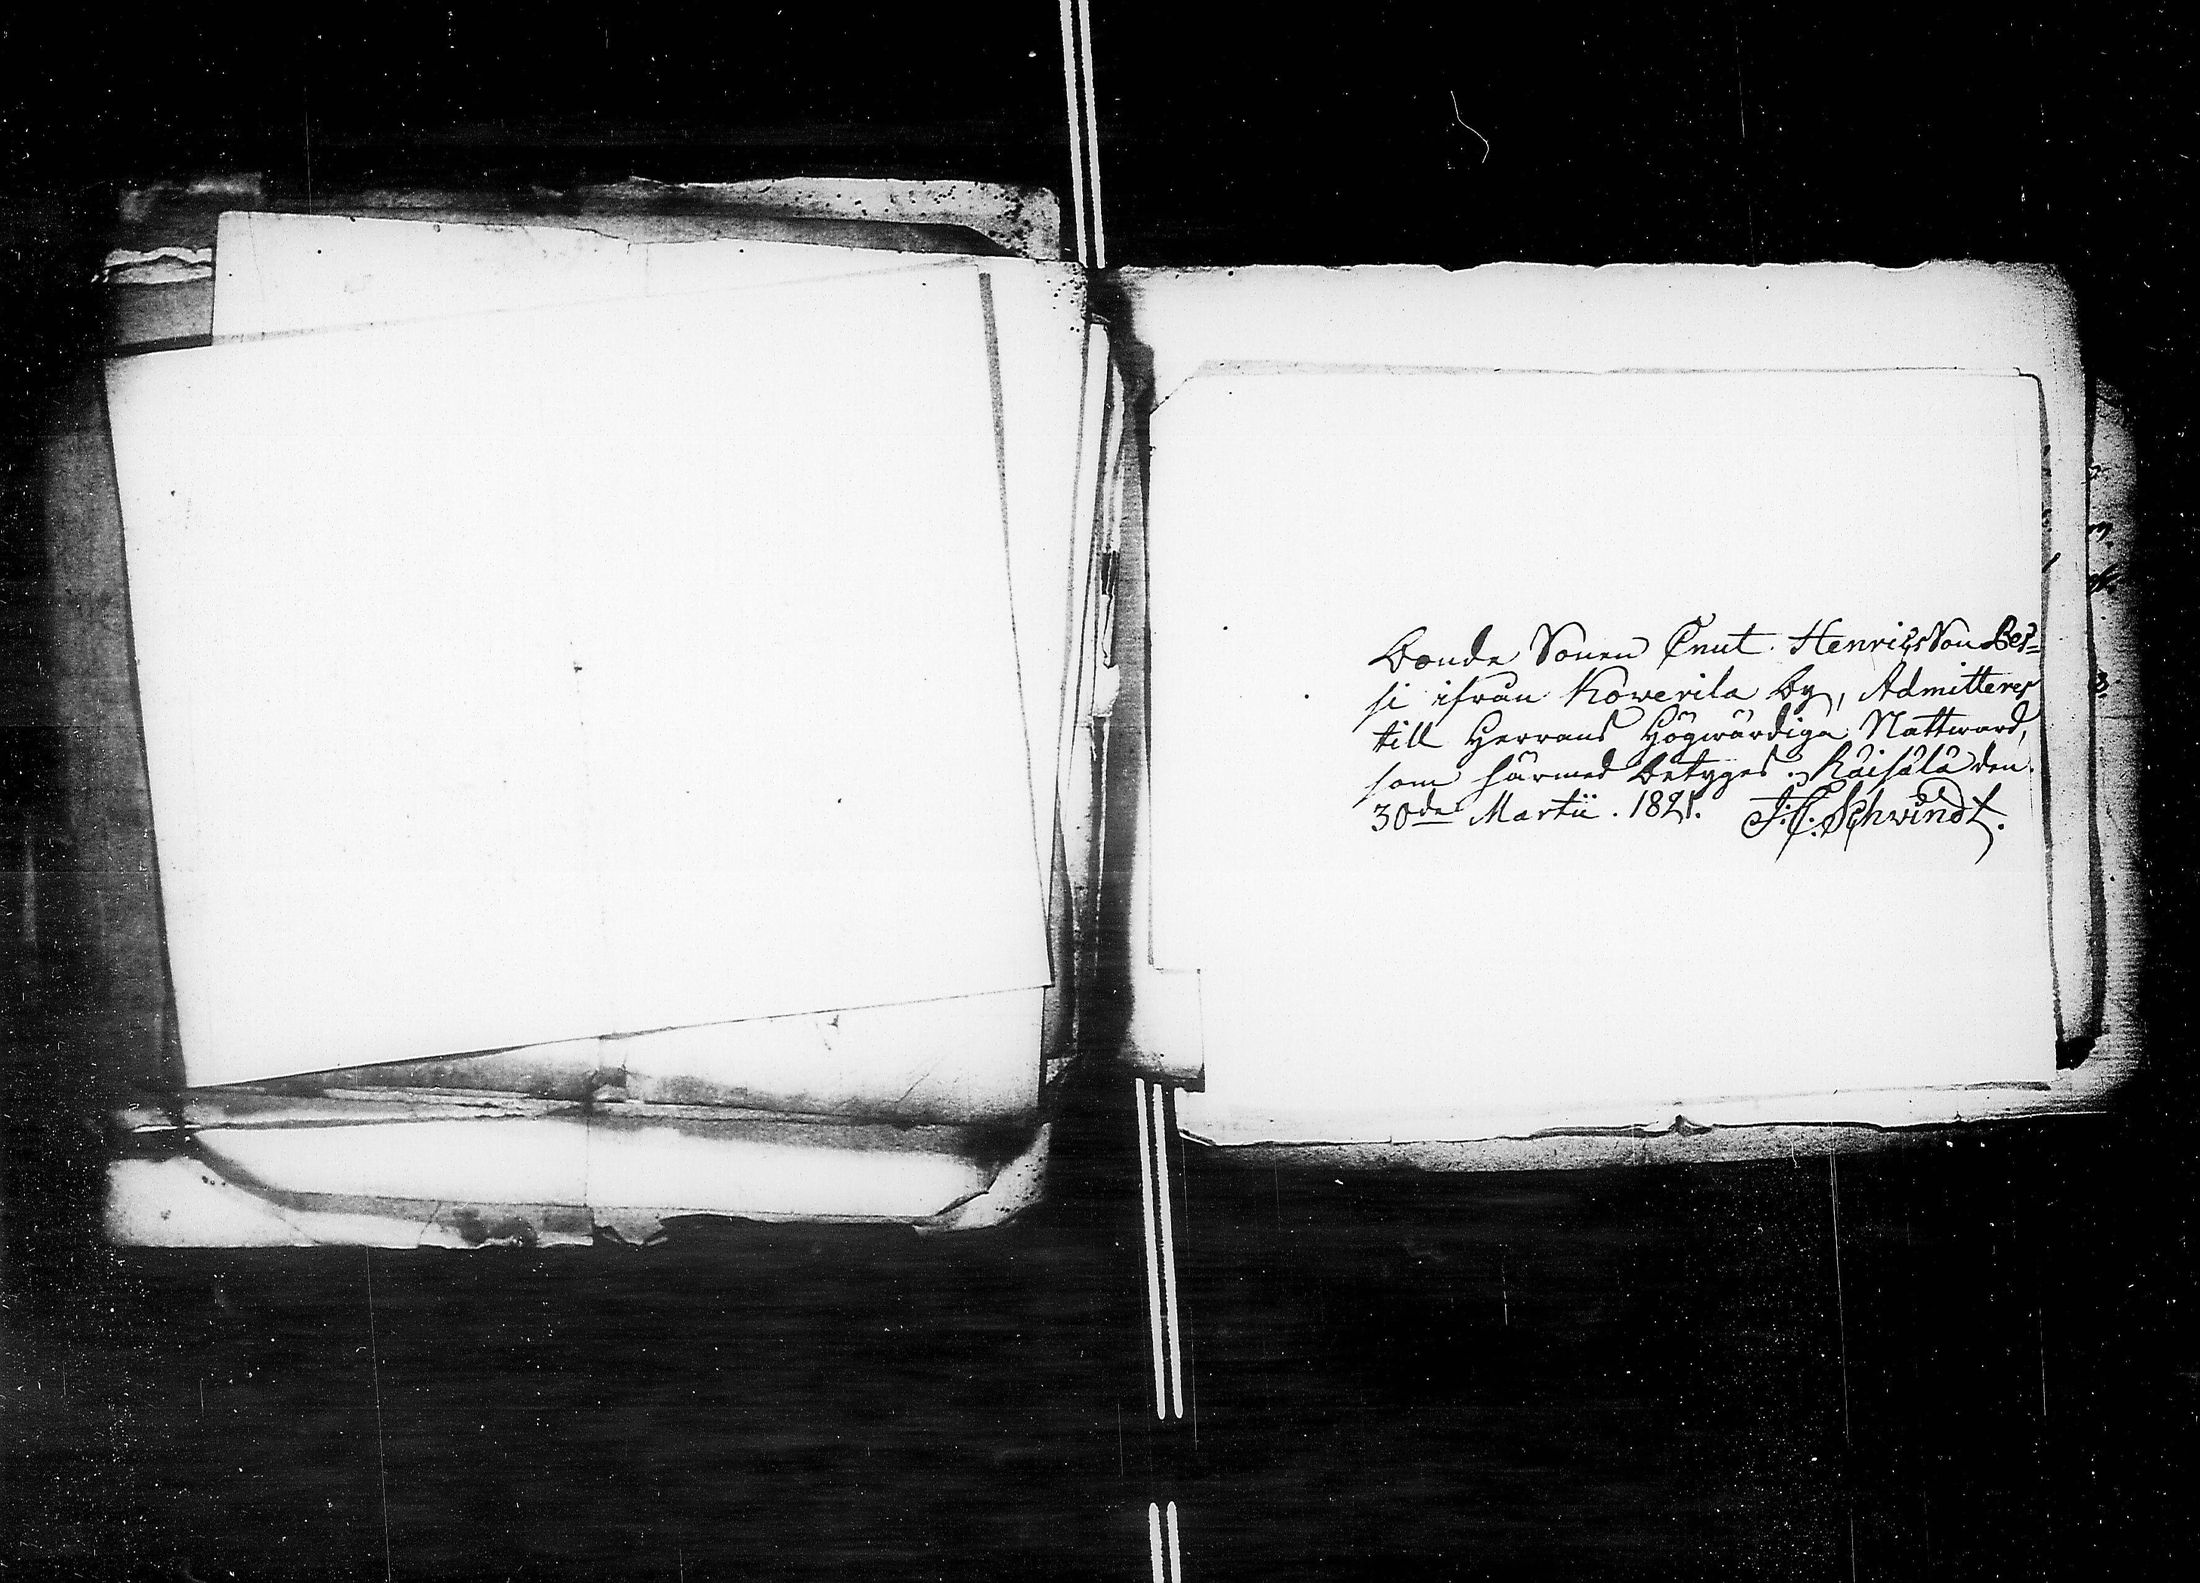 Bonde Sonen Cnut Henricsson Bes=
si ifrån Kowerila by, Admitteres
till Herrans Högwärdiga Nattward,
som härmed betyges. Räisälä den
30de Martii. 1821. J:C:Schwindt.